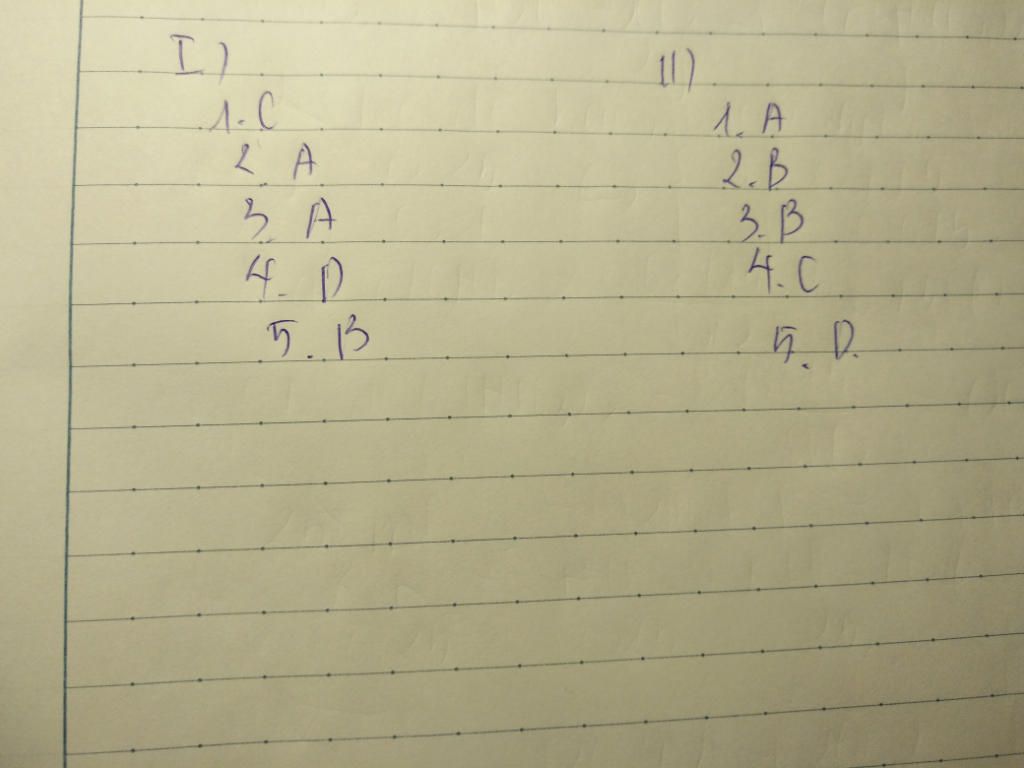 I)
1. C
2. A
3. A
4. D
5. B
II)
1. A
2. B
3. B
4. C
5. D.